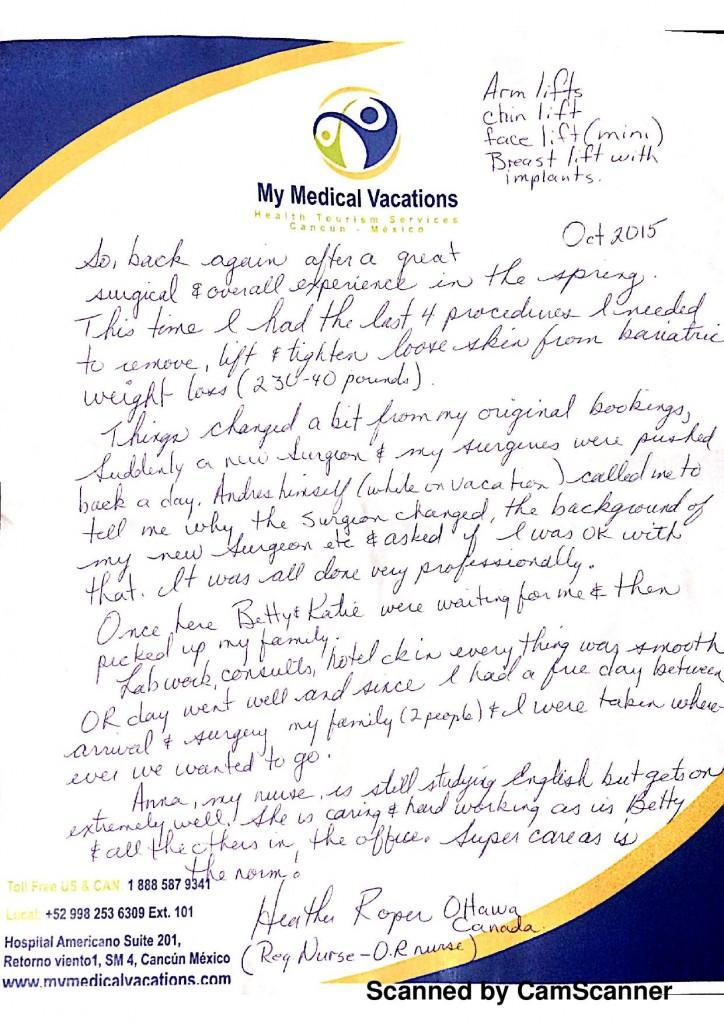 Arm lifts
chin lift
face lift (mini)
Breast lift with
implants.
My Medical Vacations
Health Tourism Services
Cancún - México
Oct 2015
So, back again after a great
surgical & overall experience in the spring.
This time I had the last 4 procedures I needed
to remove, lift & tighten loose skin from bariatric
weight loss (230-40 pounds).
Things changed a bit from my original bookings,
Suddenly a new Surgeon & my surgeries were pushed
back a day. Andres himself (while on vacation) called me to
tell me why the Surgeon changed, the background of
my new Surgeon etc & asked if I was OK with
that. It was all done very professionally.
Once here Betty & Katie were waiting for me & then
picked up my family.
Lab work, consults, hotel ck in everything was smooth
OR day went well and since I had a free day between
arrival & surgery my family (2 people) & I were taken where-
ever we wanted to go.
Anna, my nurse is still studying English but gets on
extremely well. She is caring & hard working as is Betty
& all the others in the office. Super care as is
the norm!
Heather Roper Ottawa
Canada
(Reg Nurse - O.R nurse)
Toll Free US & CAN. 1 888 587 9341
Local: +52 998 253 6309 Ext. 101
Hospital Americano Suite 201,
Retorno viento1, SM 4, Cancún México
www.mymedicalvacations.com
Scanned by CamScanner